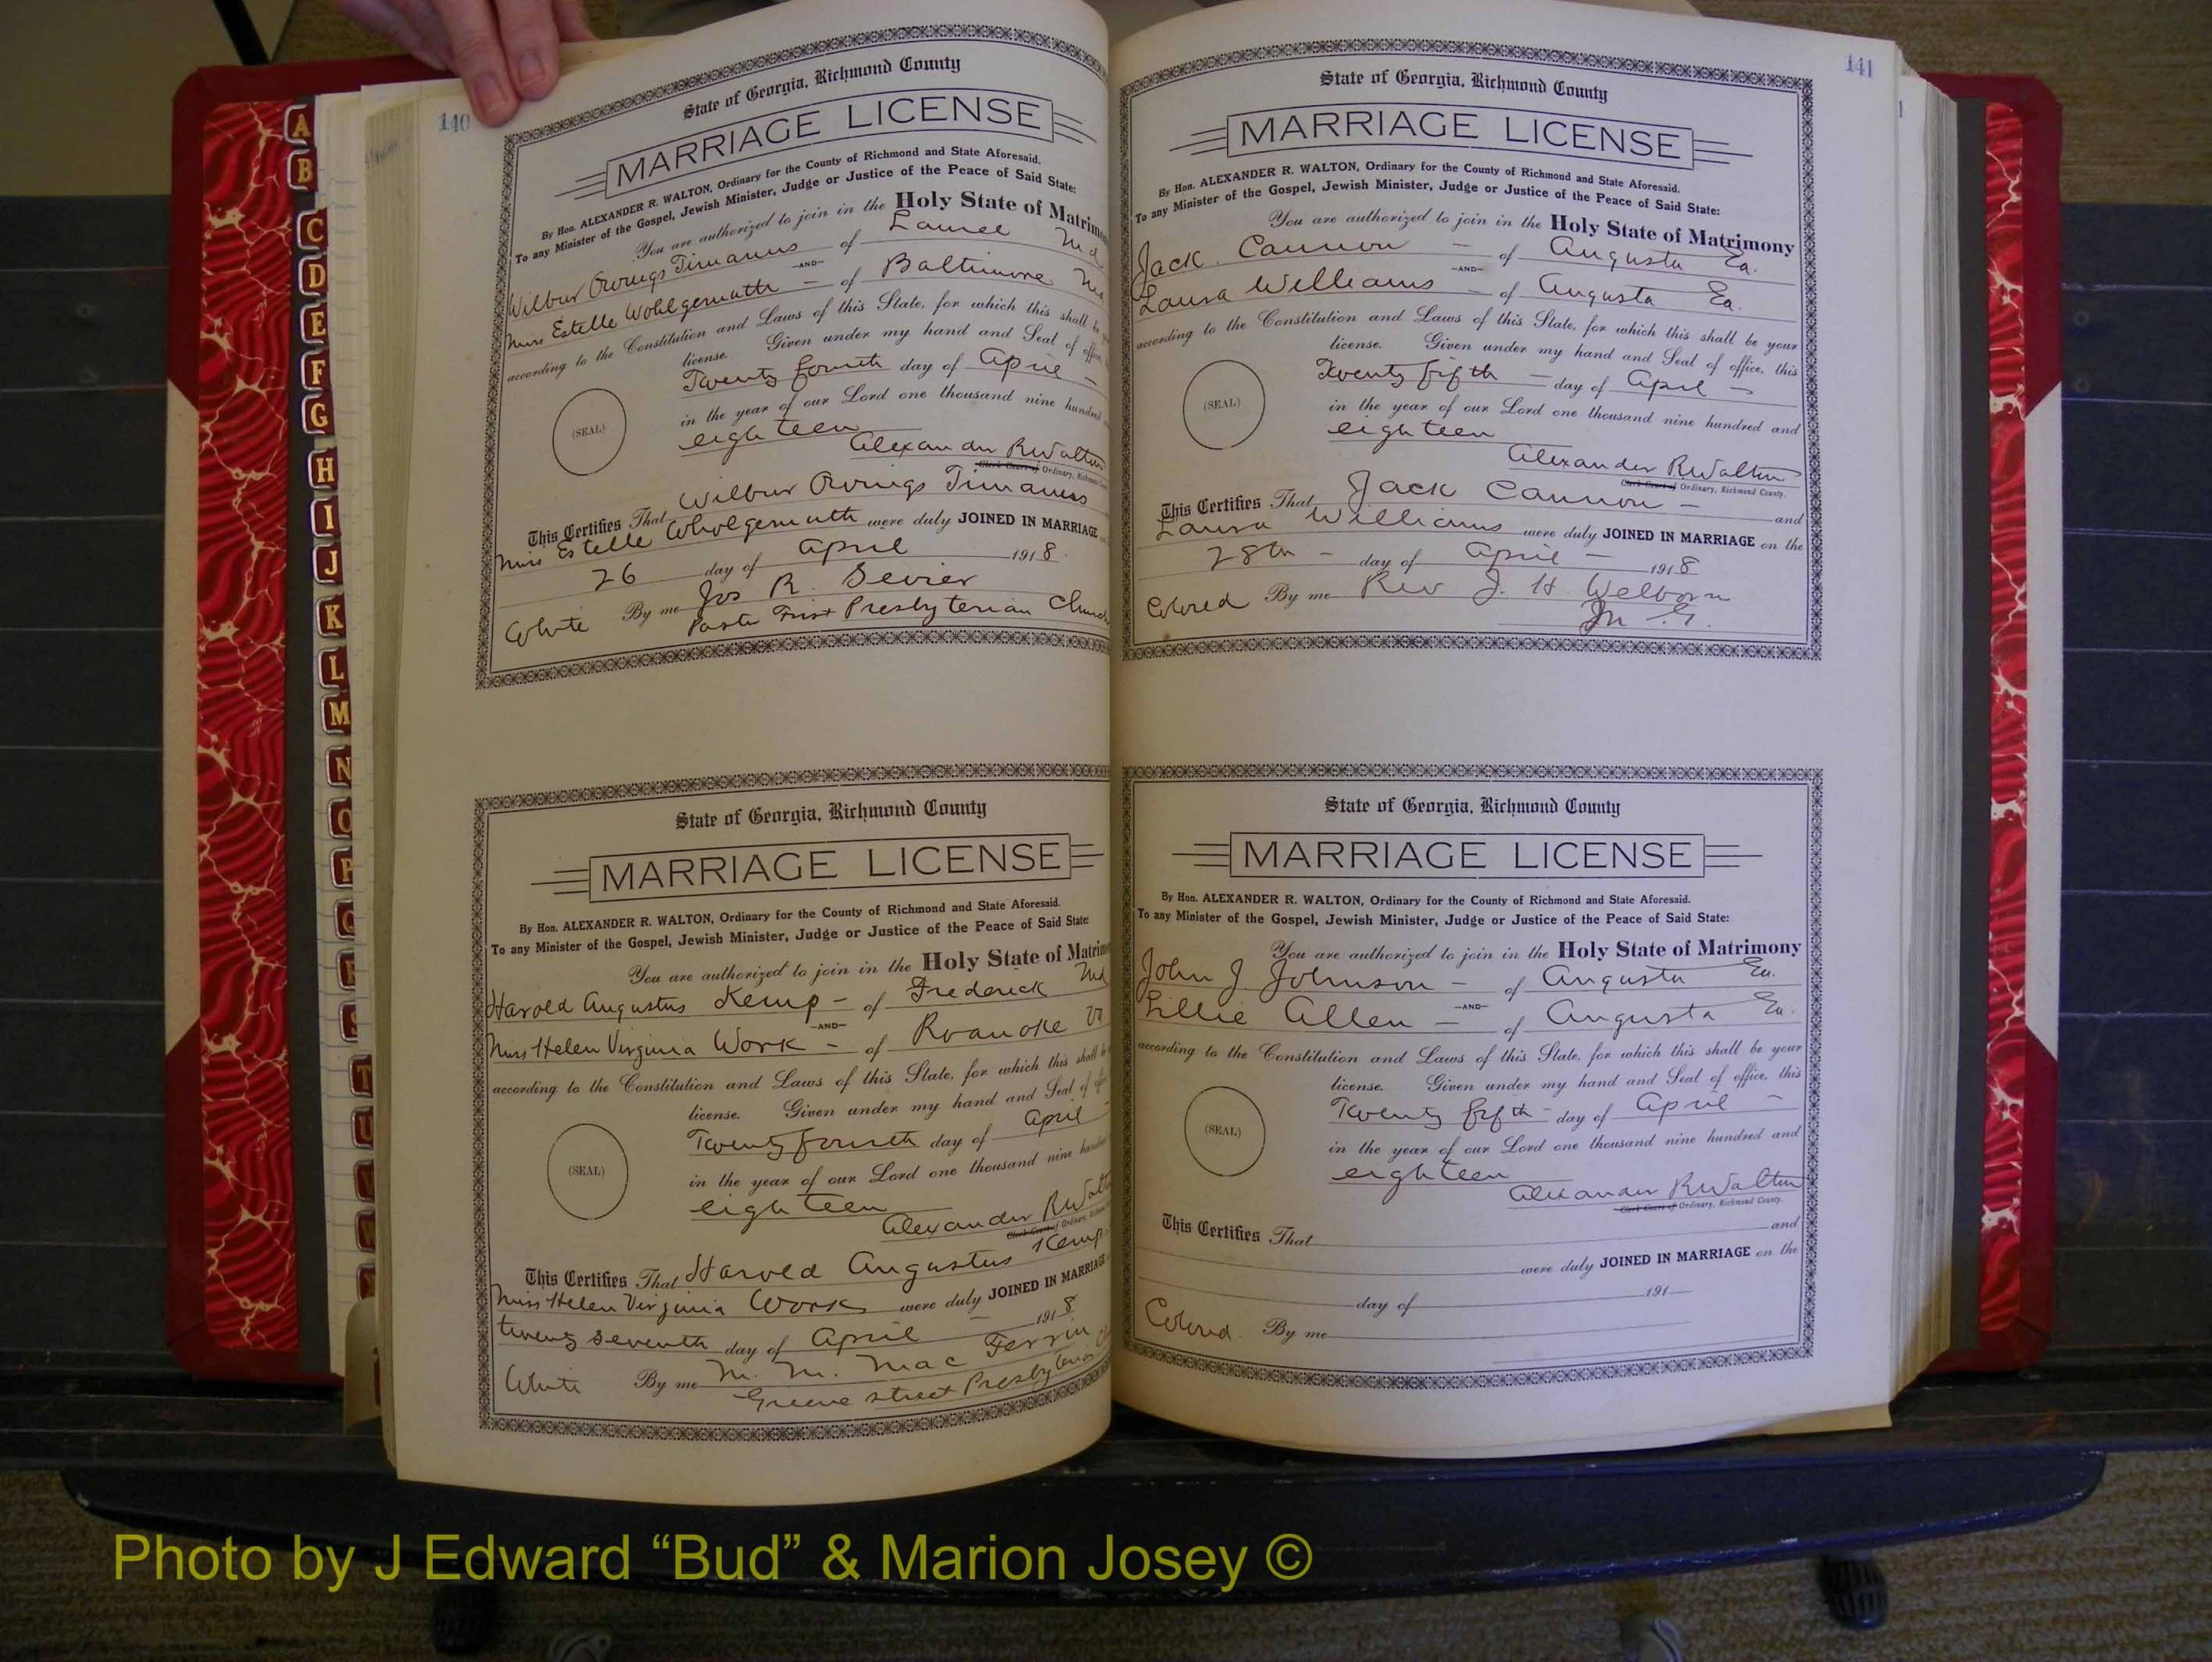 140
State of Georgia, Richmond County
MARRIAGE LICENSE
By Hon. ALEXANDER R. WALTON, Ordinary for the County of Richmond and State Aforesaid.
To any Minister of the Gospel, Jewish Minister, Judge or Justice of the Peace of Said State:
You are authorized to join in the Holy State of Matrimo
Wilbur Owings Timanus of Laurel Md
—AND—
Miss Estelle Wohlgemuth – of Baltimore Md
according to the Constitution and Laws of this State, for which this shall be
license. Given under my hand and Seal of office,
Twenty fourth day of April –
in the year of our Lord one thousand nine hundred
eighteen
Alexander R Walton
Clerk Court of Ordinary, Richmond
This Certifies That Wilbur Owings Timanus
Miss Estelle Wholgemuth were duly JOINED IN MARRIAGE
26 day of April 1918
White By me Jos R. Sevier
Pastor First Presbyterian Church
State of Georgia, Richmond County
MARRIAGE LICENSE
By Hon. ALEXANDER R. WALTON, Ordinary for the County of Richmond and State Aforesaid.
To any Minister of the Gospel, Jewish Minister, Judge or Justice of the Peace of Said State:
You are authorized to join in the Holy State of Matrim
Harold Augustus Kemp – of Frederick Md
—AND—
Miss Helen Virginia Work – of Roanoke Va
according to the Constitution and Laws of this State, for which this shall be
license. Given under my hand and Seal of office
Twenty fourth day of April –
(SEAL)
in the year of our Lord one thousand nine hundred
eighteen
Alexander R Walt
Clerk Court of Ordinary,
This Certifies That Harold Augustus Kemp
Miss Helen Virginia Work were duly JOINED IN MARRIAGE
twenty seventh day of April – 1918
White By me M. M. Mac Ferrin
Greene street Presbyterian Ch
141
State of Georgia, Richmond County
MARRIAGE LICENSE
By Hon. ALEXANDER R. WALTON, Ordinary for the County of Richmond and State Aforesaid.
To any Minister of the Gospel, Jewish Minister, Judge or Justice of the Peace of Said State:
You are authorized to join in the Holy State of Matrimony
Jack Cannon – of Augusta Ga.
—AND—
Laura Williams – of Augusta Ga.
according to the Constitution and Laws of this State, for which this shall be your
license. Given under my hand and Seal of office, this
Twenty fifth – day of April –
(SEAL)
in the year of our Lord one thousand nine hundred and
eighteen
Alexander R Walton
Clerk Court of Ordinary, Richmond County.
This Certifies That Jack Cannon – and
Laura Williams were duly JOINED IN MARRIAGE on the
28th – day of April – 1918
Colored By me Rev J. H. Welborn
M. G.
State of Georgia, Richmond County
MARRIAGE LICENSE
By Hon. ALEXANDER R. WALTON, Ordinary for the County of Richmond and State Aforesaid.
To any Minister of the Gospel, Jewish Minister, Judge or Justice of the Peace of Said State:
You are authorized to join in the Holy State of Matrimony
John J Johnson – of Augusta Ga.
—AND—
Lillie Allen – of Augusta Ga.
according to the Constitution and Laws of this State, for which this shall be your
license. Given under my hand and Seal of office, this
Twenty fifth – day of April –
(SEAL)
in the year of our Lord one thousand nine hundred and
eighteen
Alexander R Walton
Clerk Court of Ordinary, Richmond County.
This Certifies That and
were duly JOINED IN MARRIAGE on the
day of 191
Colored. By me
(SEAL)
A
B
C
D
E
F
G
H
I
J
K
L
M
N
O
P
Q
R
S
T
U
V
W
Photo by J Edward “Bud” & Marion Josey ©